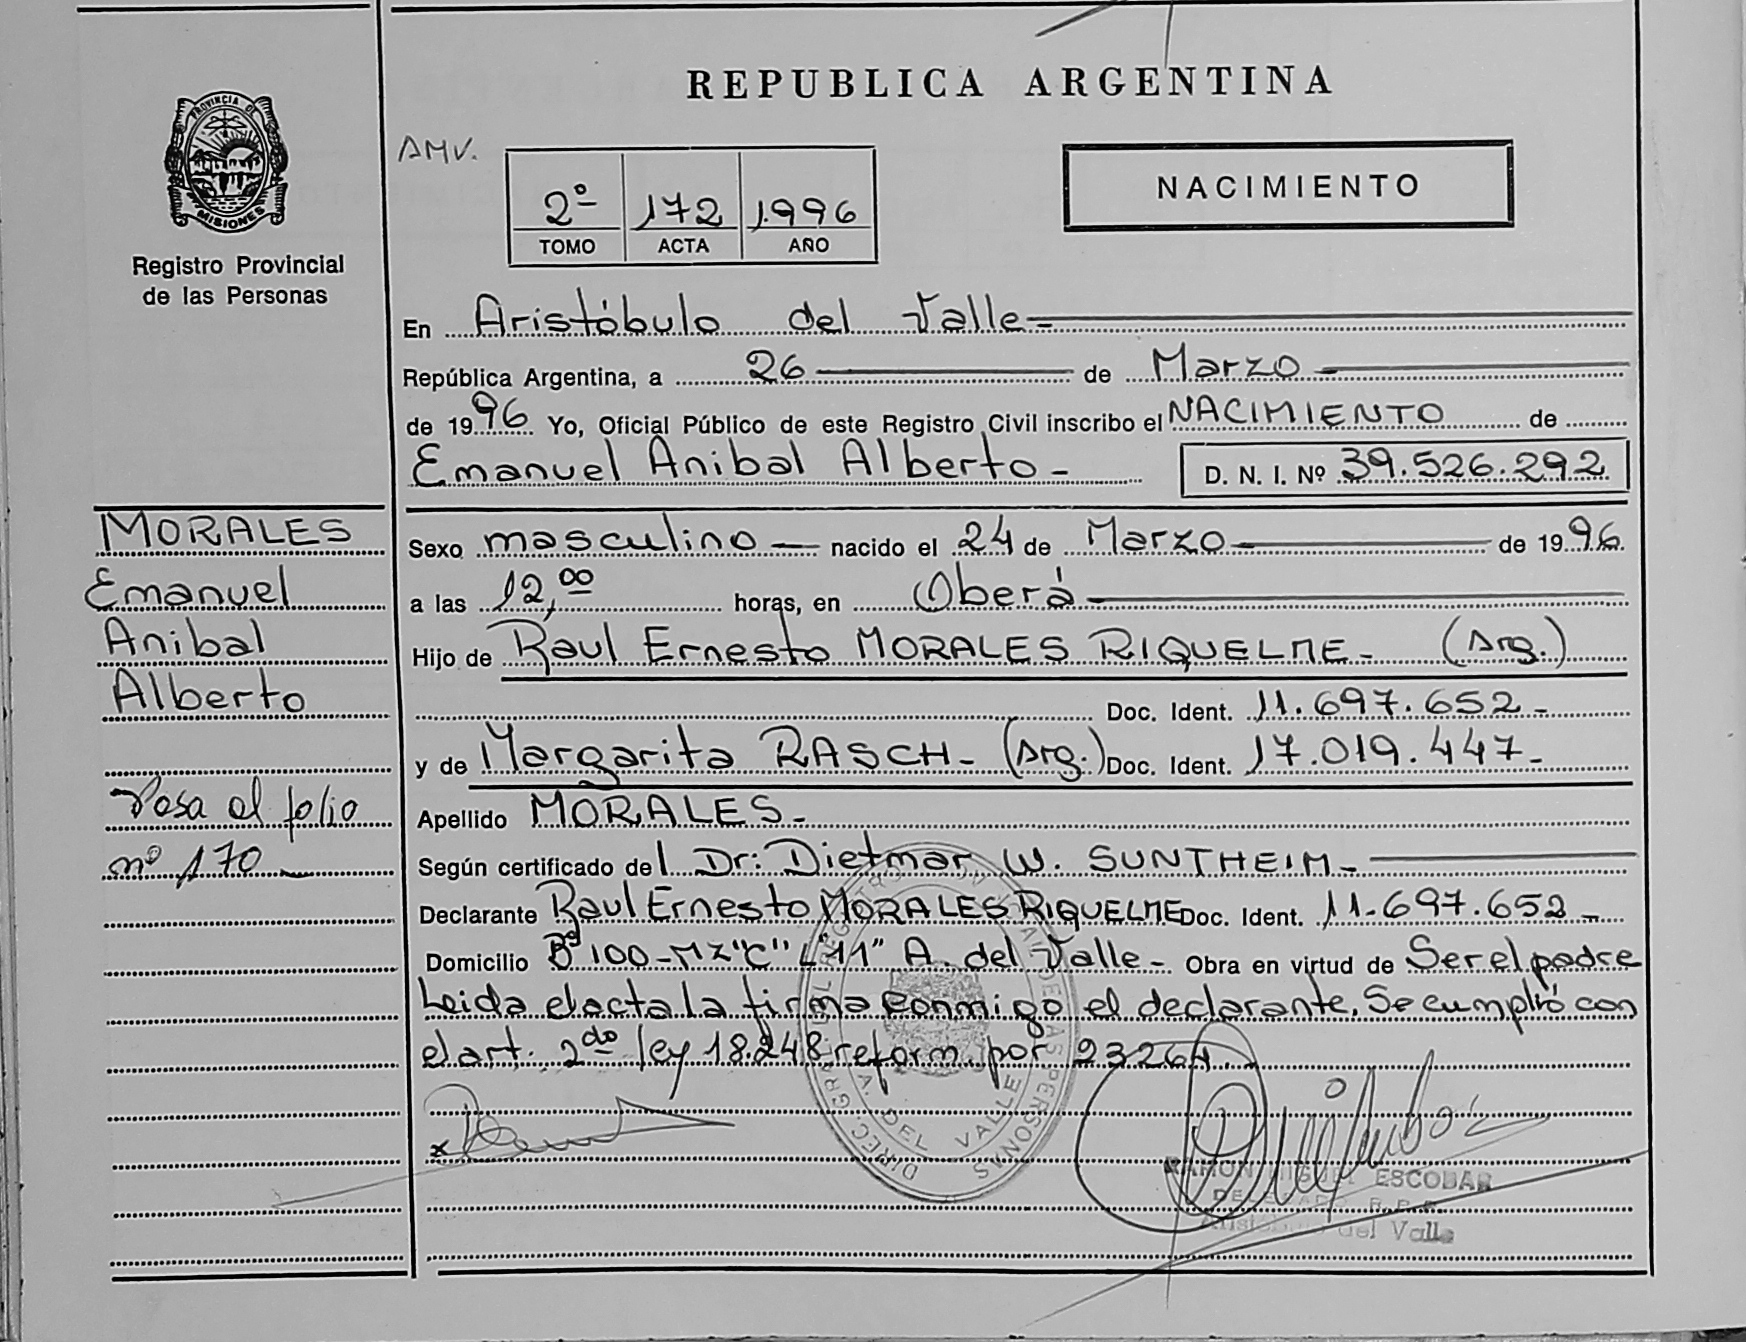 PROVINCIA DE
MISIONES
Registro Provincial
de las Personas
REPUBLICA ARGENTINA
AMV.
2º 172 1.996
TOMO ACTA AÑO
NACIMIENTO
En Aristóbulo del Valle-
República Argentina, a 26 de Marzo-
de 1996 Yo, Oficial Público de este Registro Civil inscribo el NACIMIENTO de
Emanuel Anibal Alberto- D. N. I. Nº 39.526.292
MORALES
Emanuel
Anibal
Alberto
Pasa al folio
nº 170
Sexo masculino - nacido el 24 de Marzo- de 1996.
a las 12,00 horas, en Oberá-
Hijo de Raul Ernesto MORALES RIQUELME- (Arg.)
Doc. Ident. 11.697.652-
y de Margarita RASCH- (Arg.) Doc. Ident. 17.019.447-
Apellido MORALES-
Según certificado del Dr: Dietmar W. SUNTHEIM-
Declarante Raul Ernesto MORALES RIQUELME Doc. Ident. 11.697.652-
Domicilio Bº 100-MZ"C" L"11" A. del Valle- Obra en virtud de Ser el padre
Leida el acta la firma conmigo el declarante. Se cumplió con
el art. 2do ley 18.248 reform. por 23264.-
DIREC. GRAL. DEL REGISTRO DE LAS PERSONAS
A. DEL VALLE
RAMON MIGUEL ESCOBAR
DELEGADO R.P.P.
Aristóbulo del Valle